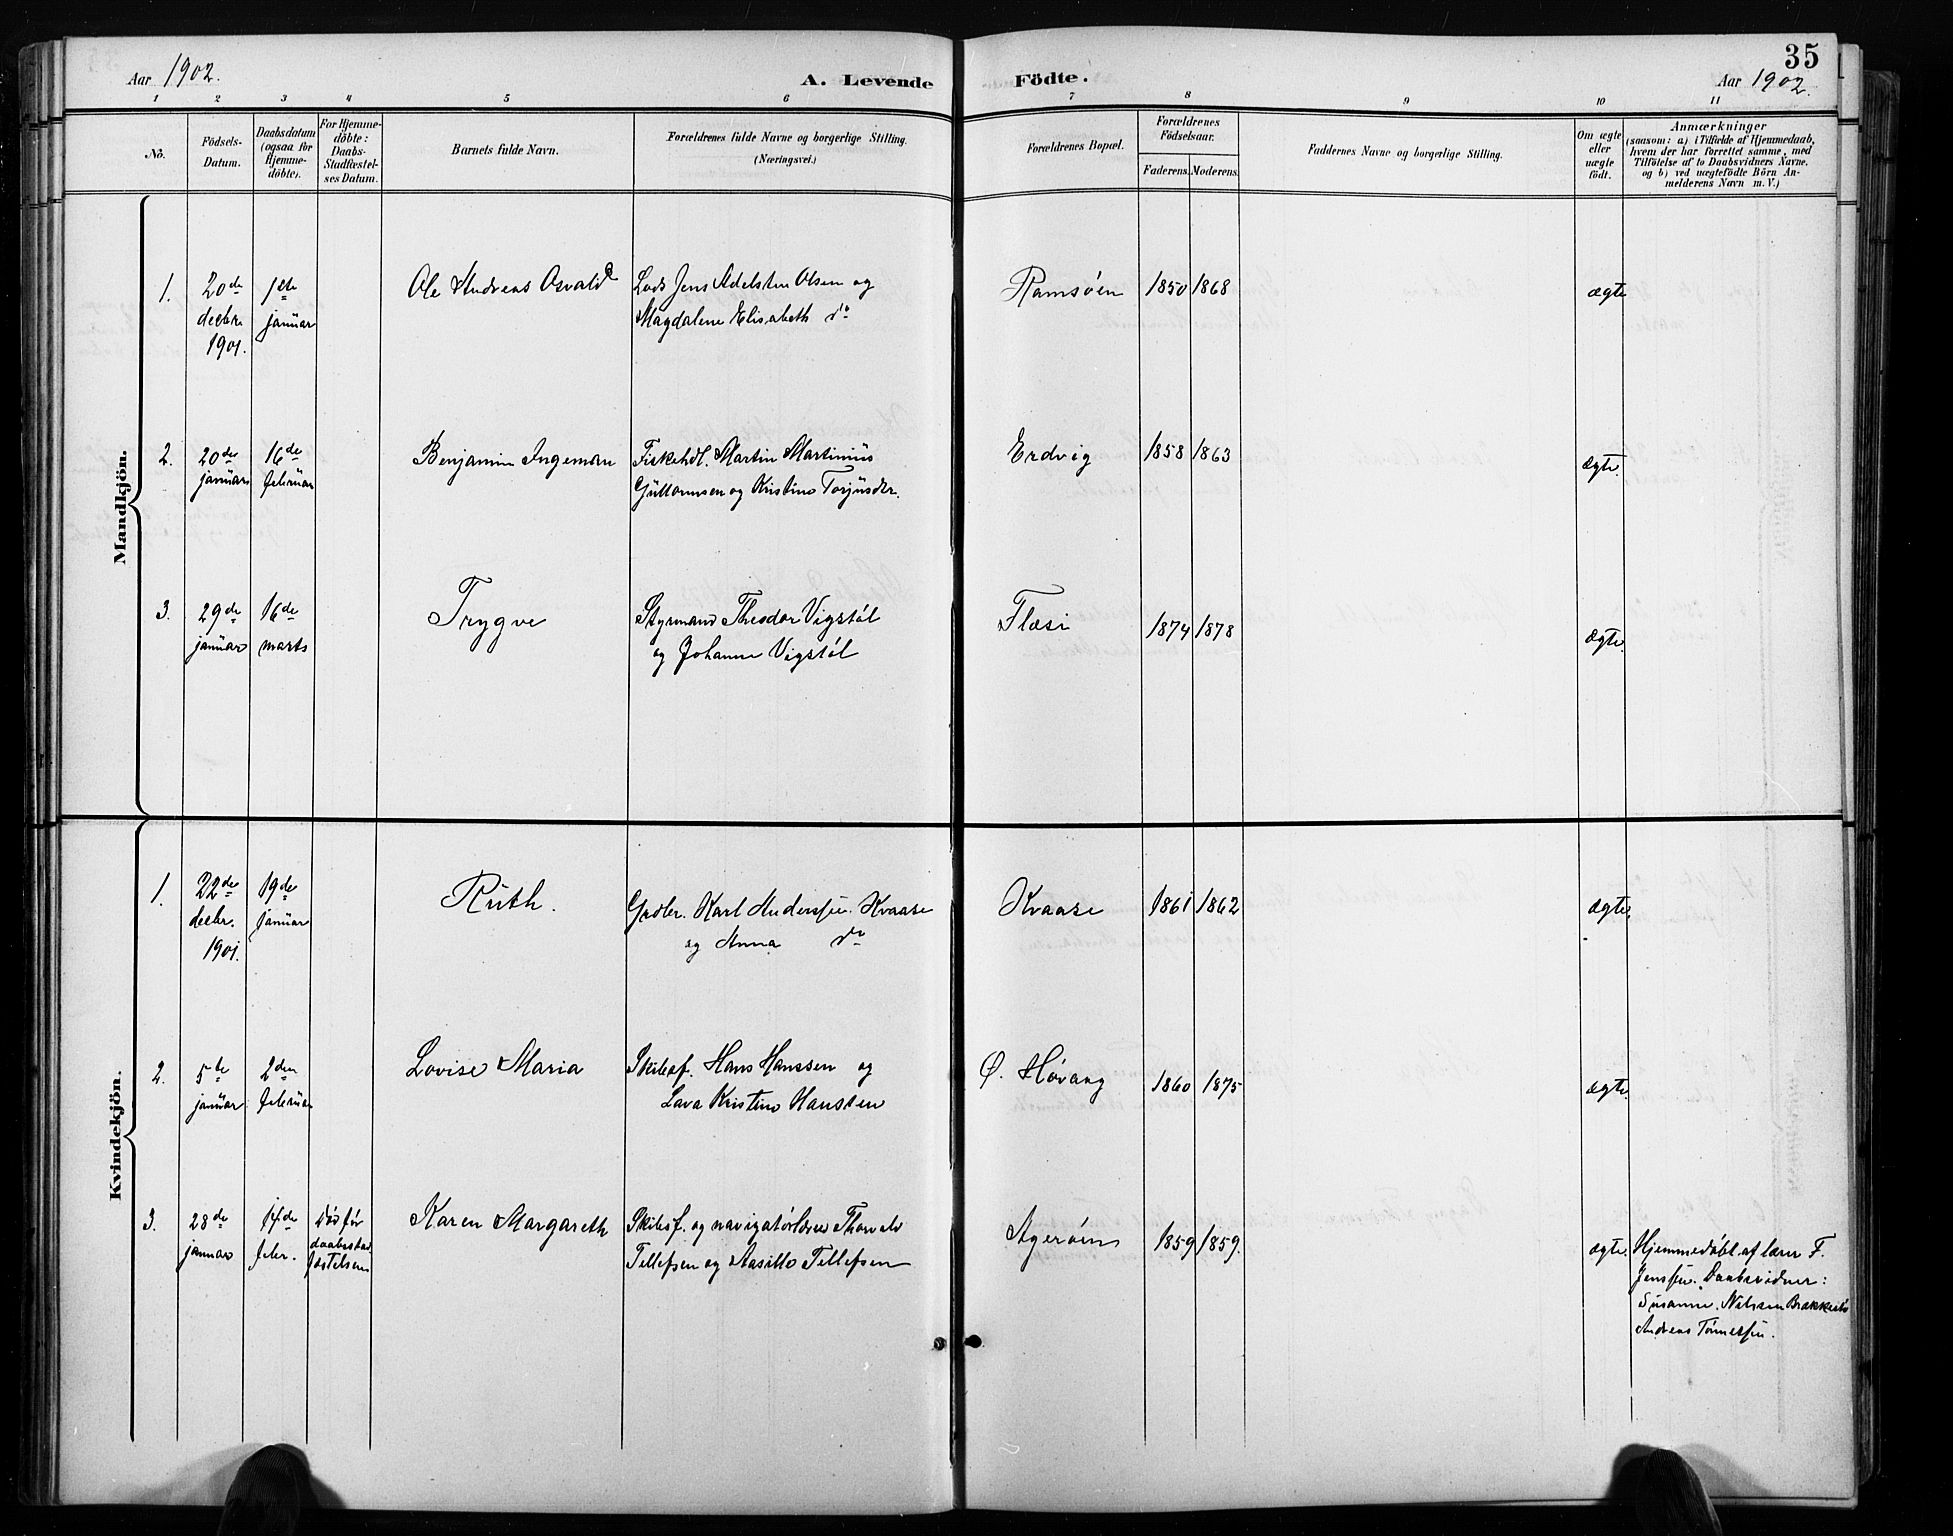 35
Aar 1902.
A. Levende Födte.
Aar 1902.
1 2 3 4 5 6 7 8 9 10 11
No.
Födsels-
Datum.
Daabsdatum
(ogsaa for
Hjemme-
döbte).
For Hjemme-
döbte:
Daabs-
Stadfæstel-
ses Datum.
Barnets fulde Navn.
Forældrenes fulde Navne og borgerlige Stilling.
(Næringsvei.)
Forældrenes Bopæl.
Forældrenes
Födselsaar.
Faderens. Moderens.
Faddernes Navne og borgerlige Stilling.
Om ægte
eller
uægte
födt.
Anmærkninger
(saasom: a) i Tilfælde af Hjemmedaab,
hvem der har forrettet samme, med
Tilföielse af to Daabsvidners Navne,
og b) ved uægtefödte Börn An-
melderens Navn m. V.)
Mandkjön.
1.
20de
decbr.
1901.
1ste
januar
Ole Andreas Osvald
Lods Jens Adelsten Olsen og
Magdalene Elisabeth do
Ramsøen
1850 1868
ægte
2.
20de
januar
16de
februar
Benjamin Ingeman
Fiskehdl. Martin Martinius
Guttormsen og Kristine Torjusdtr.
Erdvig
1858 1863
ægte.
3.
29de
januar
16de
marts
Trygve
Styrmand Theodor Vigstøl
og Johanne Vigstøl
Flæsi
1874 1878
ægte.
Kvindekjön.
1.
22de
decbr.
1901.
19de
januar
Ruth.
Grdbr. Karl Anderssen Kvaase
og Anna do
Kvaase
1861 1862
ægte.
2.
5te
januar
2den
februar
Lovise Maria
Skibsf. Hans Hanssen og
Lava Kristine Hanssen
Ø. Høvaag
1860 1875
ægte.
3.
28de
januar
14de
febr.
Død før
daabsstad-
fæstelsen
Karen Margareth
Skibsf. og navigatørlærer Thorvald
Tellefsen og Aasille Tellefsen
Agerøen
1859 1859.
ægte.
Hjemmedøbt af lærer F.
Jenssen. Daabsvidner:
Susanne Nilssen Brækkestø
Andreas Tønnessen.